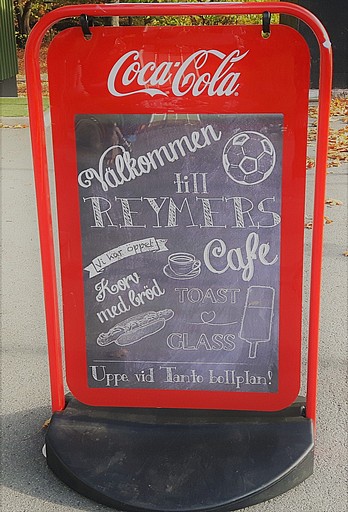 Coca-Cola
Välkommen
till
REYMERS
Vi har öppet!
Cafe
Korv
med bröd
TOAST
GLASS
Uppe vid Tanto bollplan!